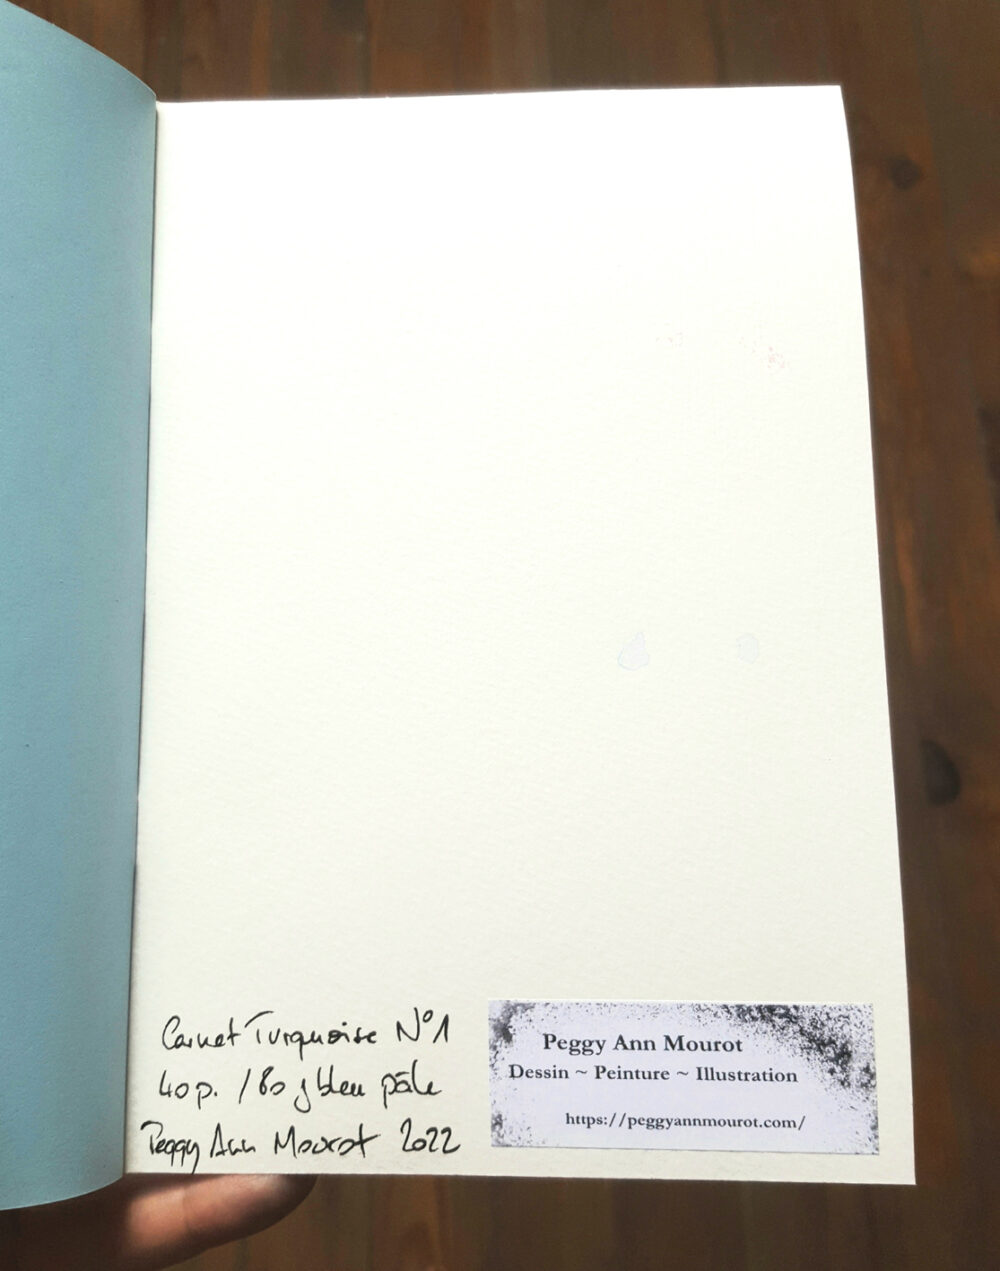 Carnet Turquoise N°1
40p. / 80 g bleu pâle
Peggy Ann Mourot 2022
Peggy Ann Mourot
Dessin ~ Peinture ~ Illustration
https://peggyannmourot.com/